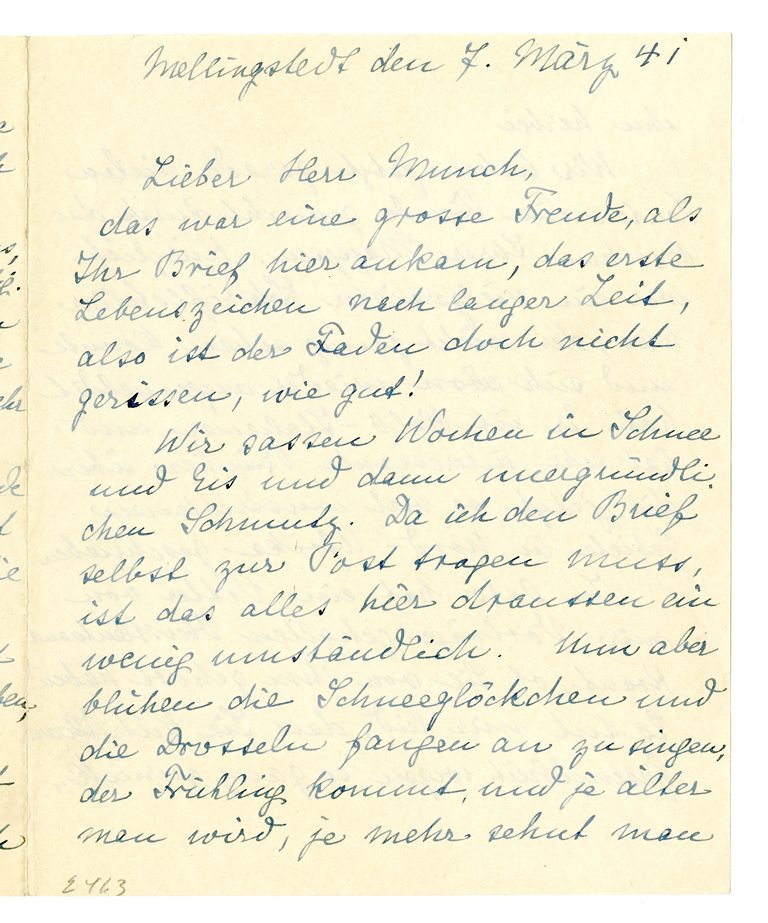 Mellingstedt den 7. März 41
Lieber Herr Munch,
das war eine grosse Freude, als
Ihr Brief hier ankam, das erste
Lebenszeichen nach langer Zeit,
also ist der Faden doch nicht
gerissen, wie gut!
Wir sassen Wochen in Schnee
und Eis und dann unergründli-
chen Schmutz. Da ich den Brief
selbst zur Post tragen muss,
ist das alles hier draussen ein
wenig umständlich. Nun aber
blühen die Schneeglöckchen und
die Drosseln fangen an zu singen,
der Frühling kommt, und je älter
man wird, je mehr sehnt man